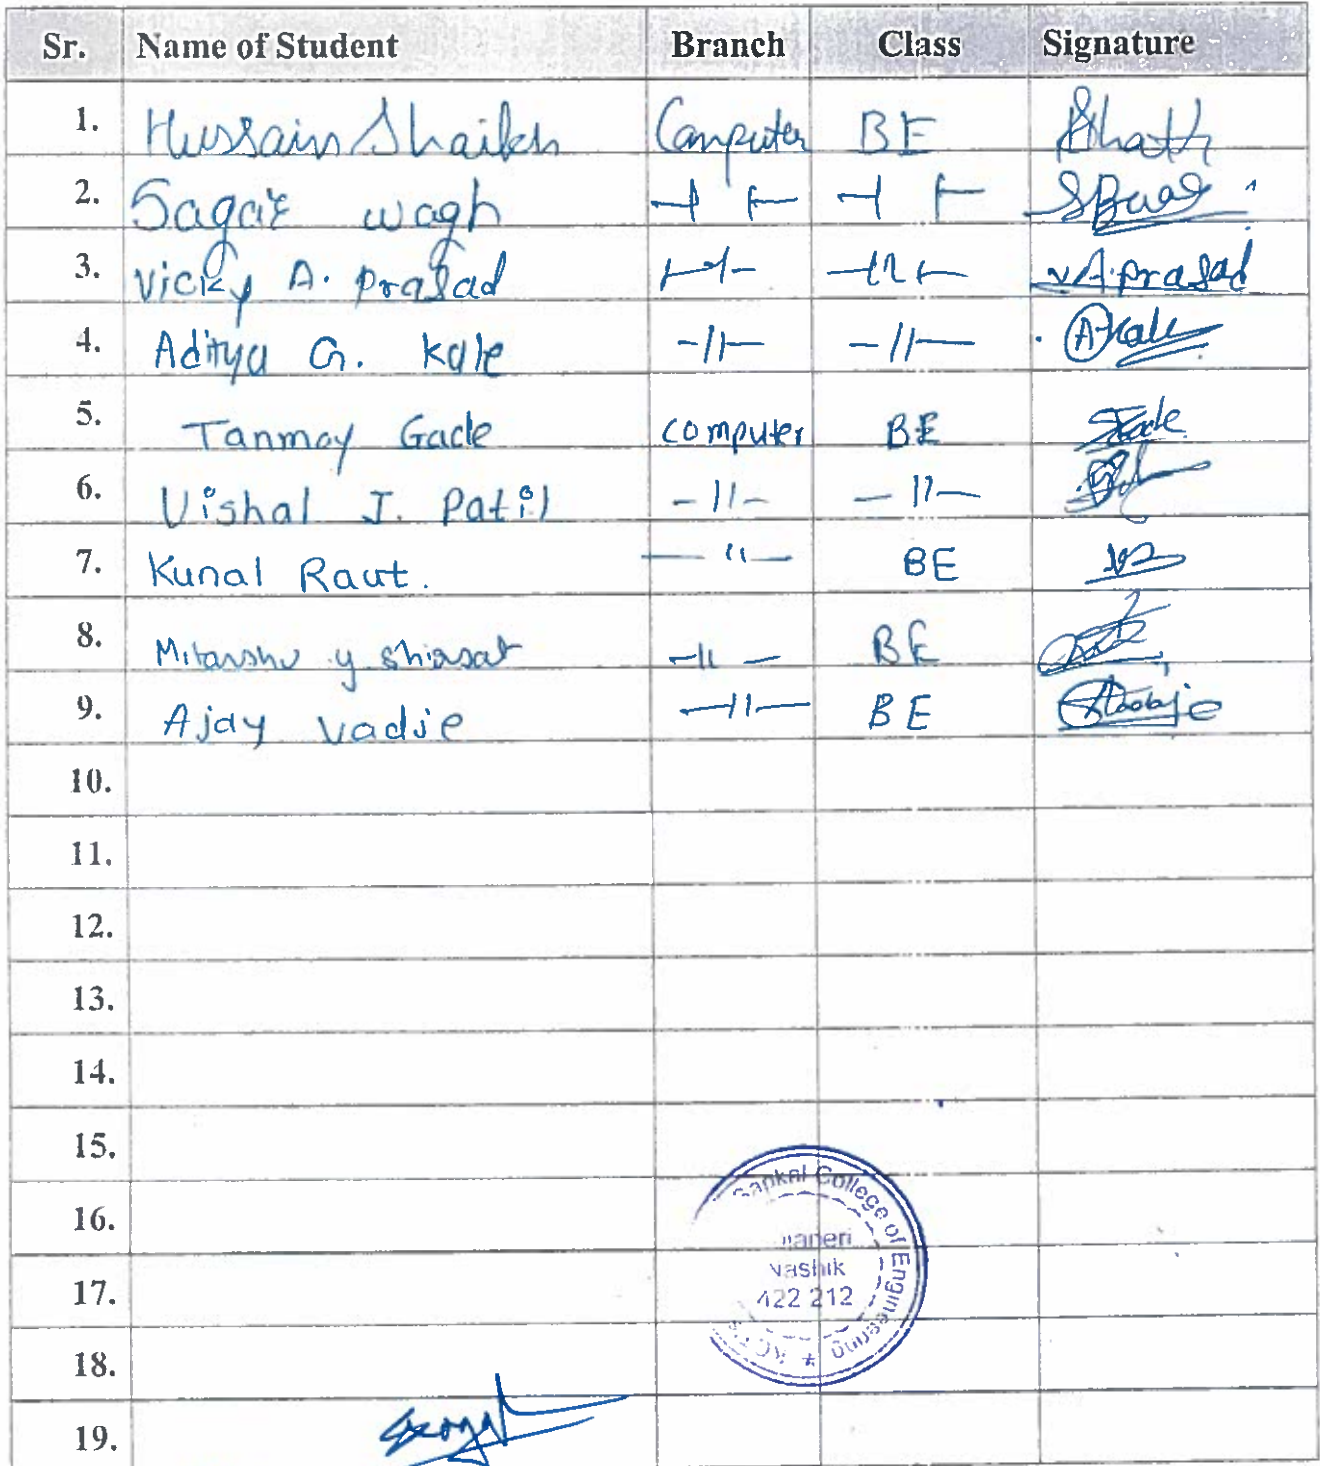 Sr. Name of Student Branch Class Signature
1. Hussain Shaikh Computer BE
2. Sagar wagh -||- -||-
3. Vicky A. prasad -||- -||- v.A.prasad
4. Aditya G. Kale -||- -||- AKale
5. Tanmay Gade computer BE
6. Vishal J. Patil -||- -||-
7. Kunal Raut. -||- BE
8. y shirsat -||- BE
9. Ajay Vadje -||- BE
10.
11.
12.
13.
14.
15.
16.
17.
18.
19.
Sapkal College of Engineering
Nashik
422 212